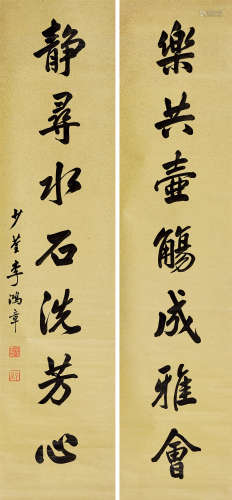 樂共壺觴成雅會
静尋水石洗芳心
少荃李鴻章